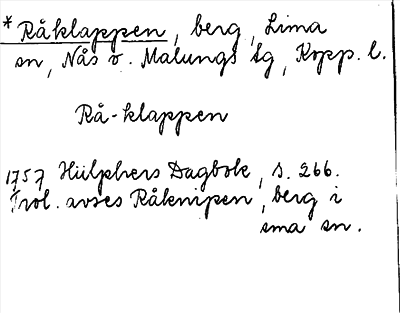 * Råklappen, berg, Lima
sn, Nås o. Malungs tg, Kopp. l.
Rå-klappen
1757 Hülphers Dagbok, s. 266.
Trol. avses Råknipen, berg i
sma sn.